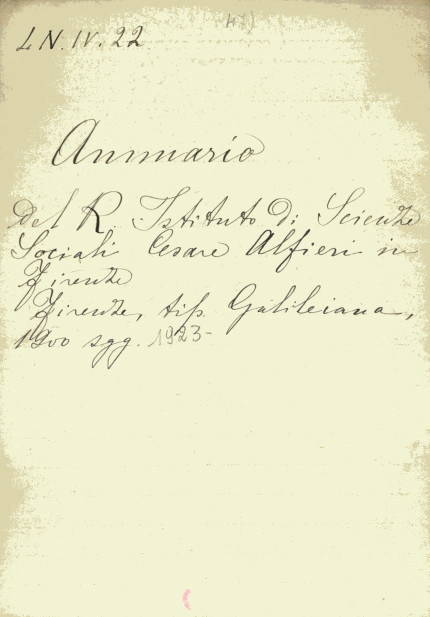 LN.IV.22
Annuario
del R. Istituto di Scienze
Sociali Cesare Alfieri in
Firenze
Firenze, tip. Galileiana,
1900 sgg. 1923-